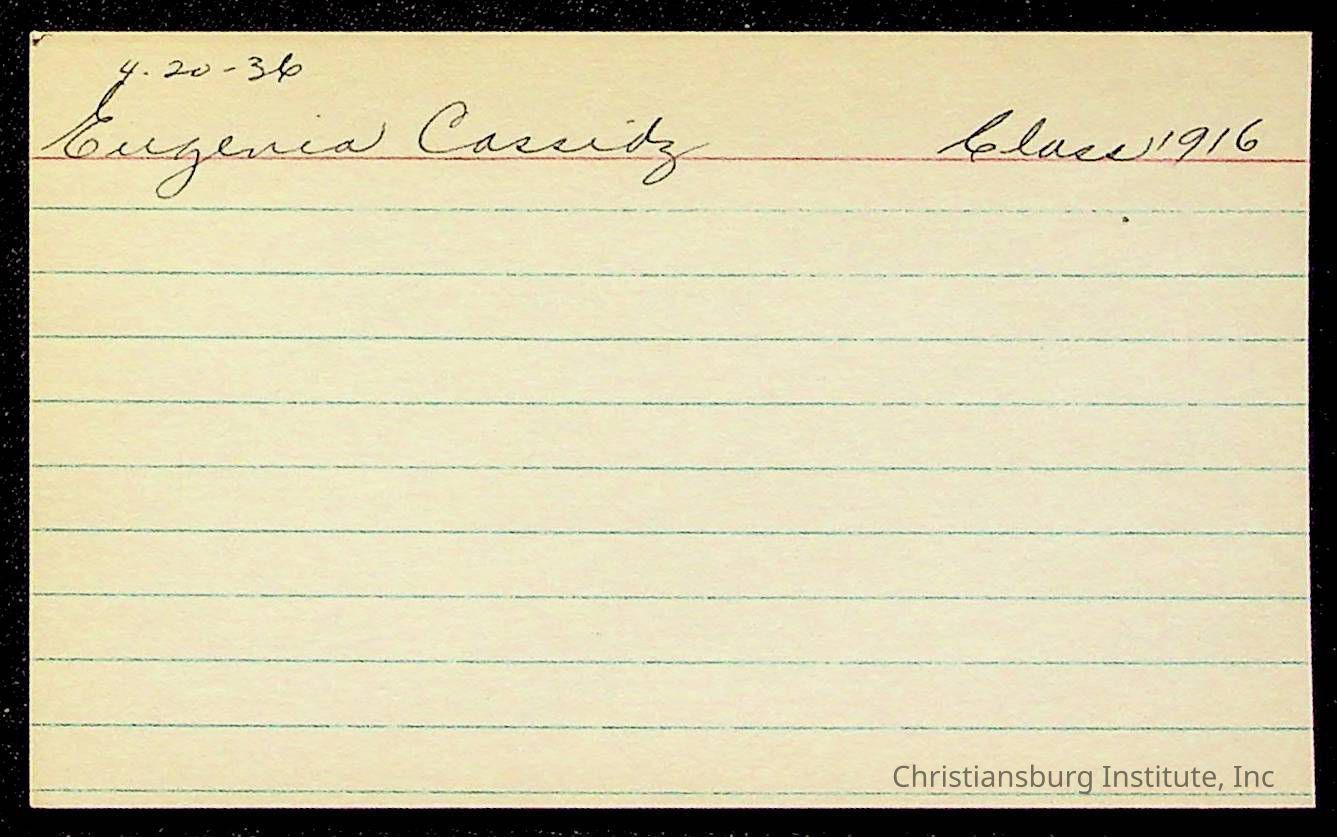 4-20-36
Eugenia Cassidy Class 1916
Christiansburg Institute, Inc